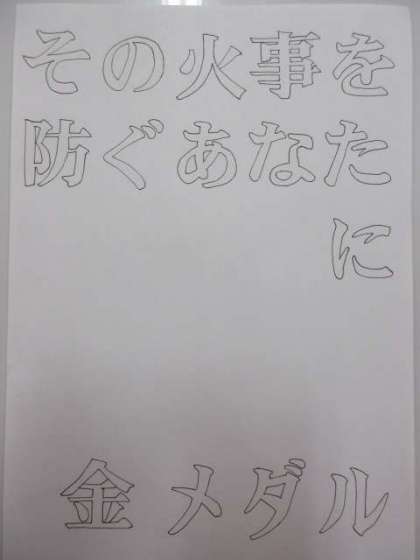 その火事を
防ぐあなた
に
金メダル